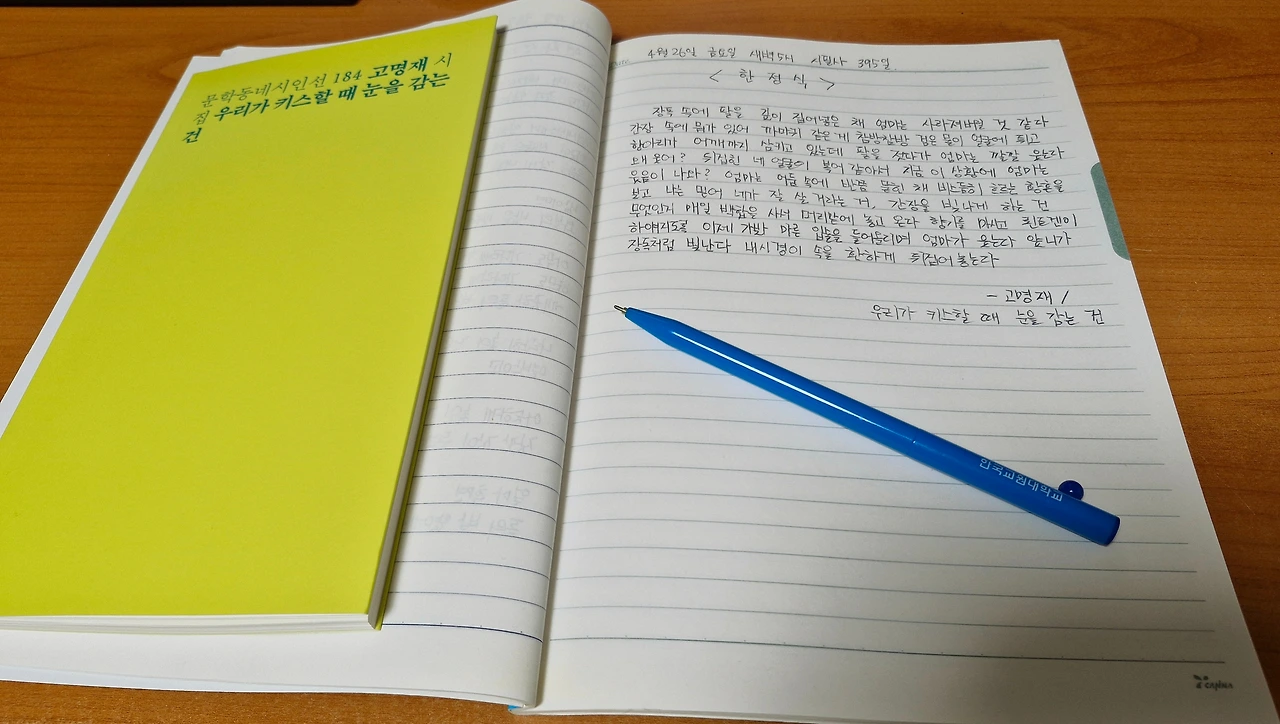 문학동네시인선 184 고명재 시
집 우리가 키스할 때 눈을 감는
건
4월 26일 금요일 새벽 5시 시필사 395일.
< 한 정 식 >
장독 속에 팔을 깊이 집어넣은 채 엄마는 사라져버릴 것 같다
간장 속에 뭐가 있어 까마귀 같은 게 첨벙첨벙 검은 물이 얼굴에 튀고
항아리가 어깨까지 삼키고 있는데 팔을 젓다가 엄마는 깔깔 웃는다
왜 웃어? 뒤집힌 네 얼굴이 복어 같아서 지금 이 상황에 엄마는
웃음이 나와? 엄마는 어둠 속에 반쯤 물린 채 비스듬히 흐르는 황혼을
보고 나는 믿어 네가 잘 살 거라는 거, 간장을 빛나게 하는 건
무엇인지 매일 백합을 사서 머리맡에 놓고 온다 향기를 마시고 뢴트겐이
하얘지도록 이제 가장 마른 입술을 들어올리며 엄마가 웃는다 앞니가
장독처럼 빛난다 내시경이 속을 환하게 뒤집어놓는다
- 고명재 /
우리가 키스할 때 눈을 감는 건
한국교원대학교